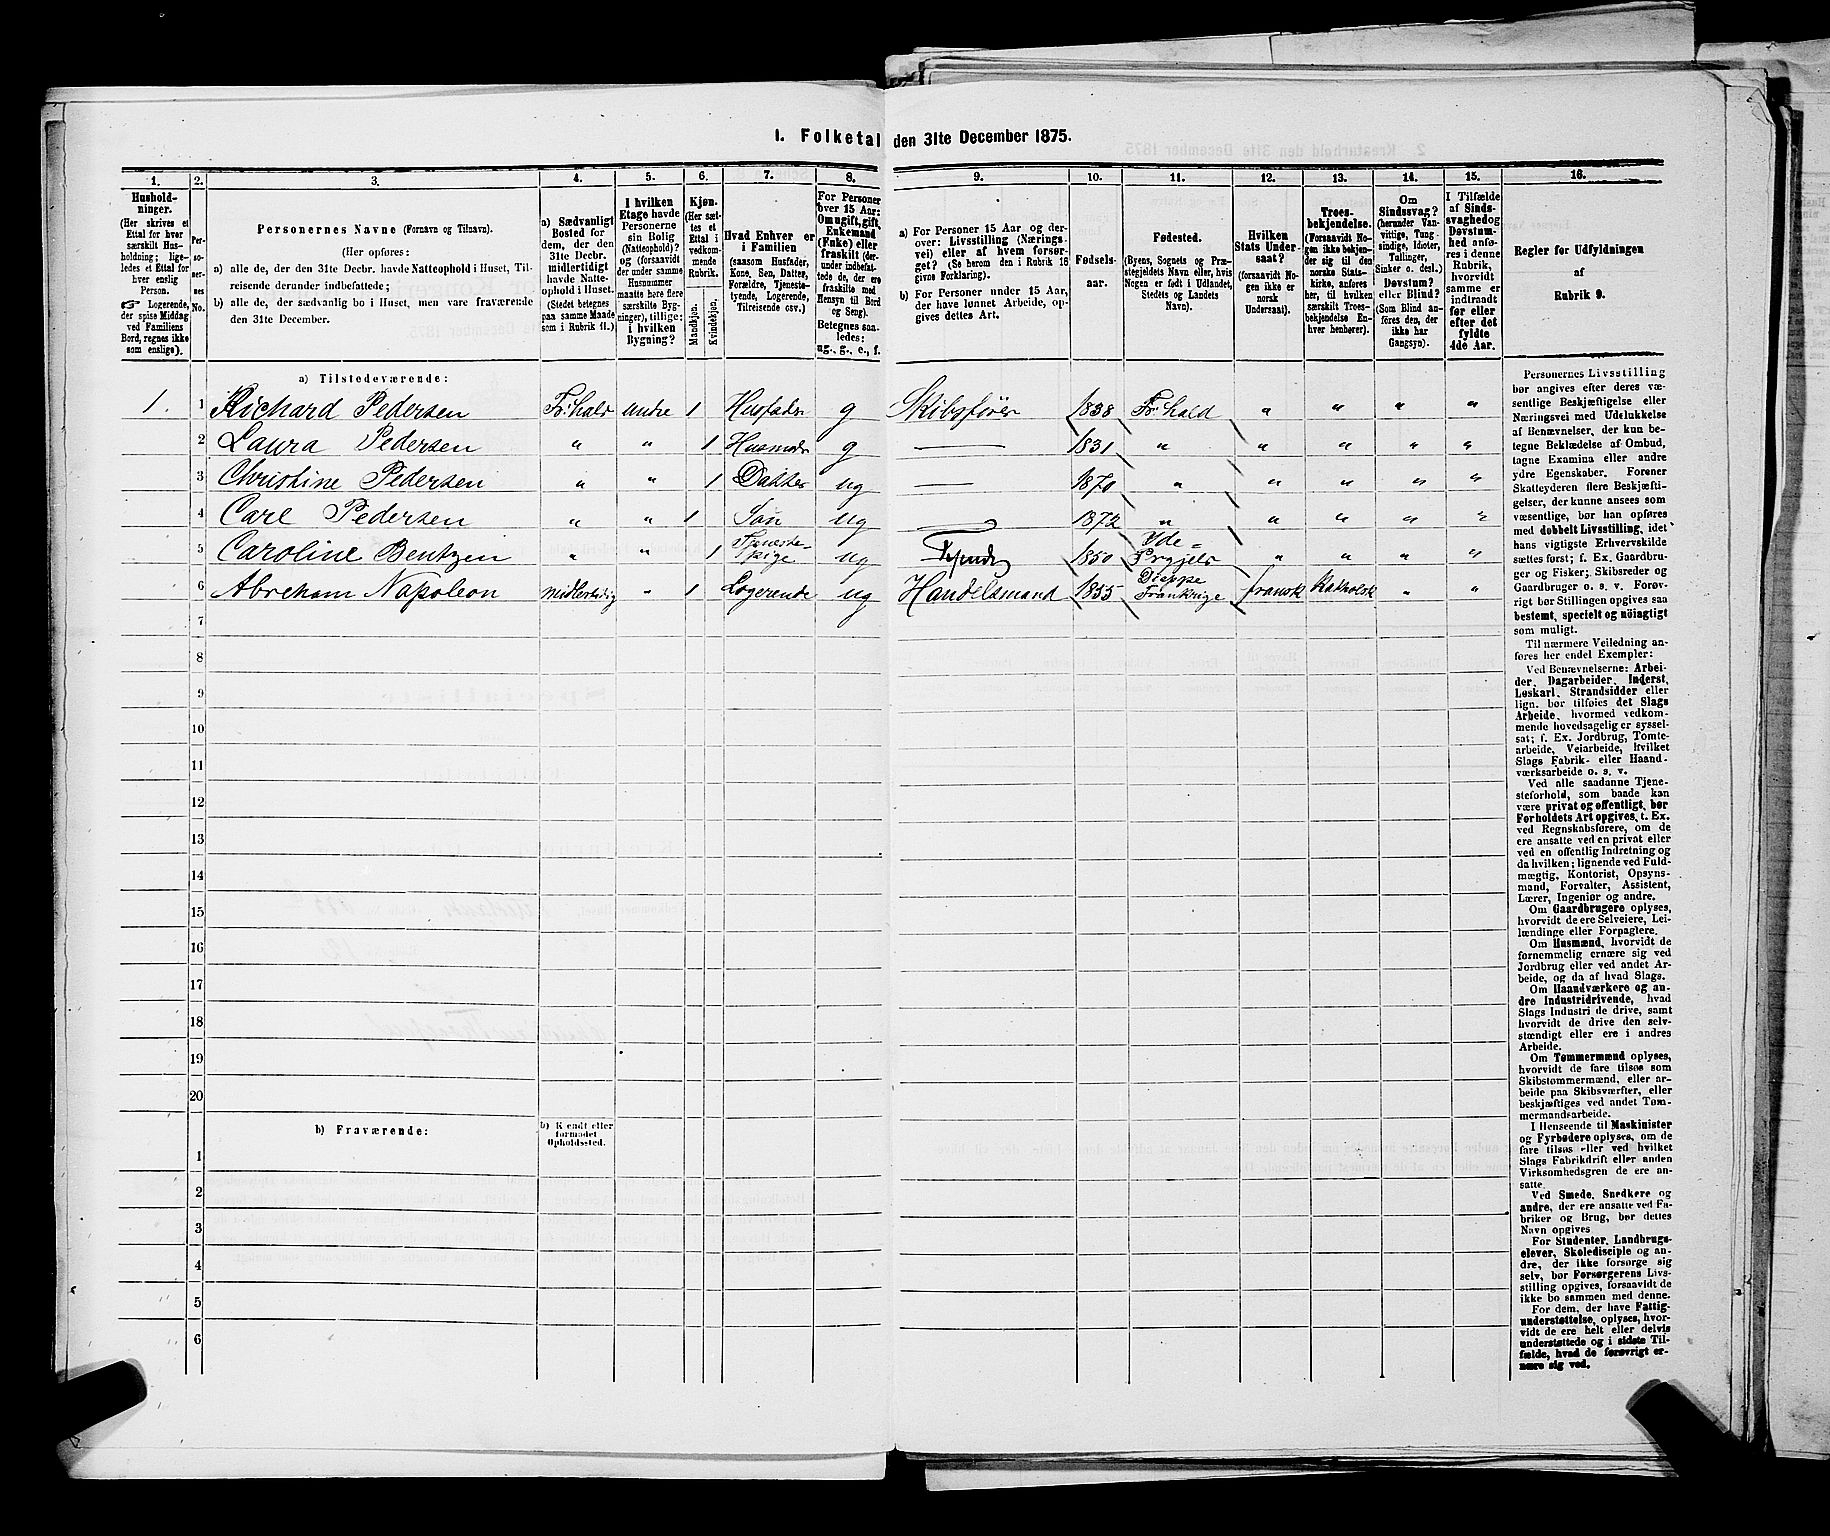 1. Folketal den 31te December 1875.
1. 2. 3. 4. 5. 6. 7. 8. 9. 10. 11. 12. 13. 14. 15. 16.
Hushold-
ninger.
(Her skrives et
Ettal for hver
særskilt Hus-
holdning; lige-
ledes et Ettal for
hver enslig
Person.
☞ Logerende,
der spise Middag
ved Familiens
Bord, regnes ikke
som enslige).
Per-
so-
ner-
nes
No.
Personernes Navne (Fornavn og Tilnavn).
(Her opføres:
a) alle de, der den 31te Decbr. havde Natteophold i Huset, Til-
reisende derunder indbefattede;
b) alle de, der sædvanlig bo i Huset, men vare fraværende
den 31te December.
a) Sædvanligt
Bosted for
dem, der den
31te Decbr.
midlertidigt
havde Natte-
ophold i Huset.
(Stedet betegnes
paa samme Maade
som i Rubrik 11.)
I hvilken
Etage havde
Personerne
sin Bolig
(Natteophold)?
og (forsaavidt
der under samme
Husnummer
maatte høre flere
særskilte Byg-
ninger), tillige:
i hvilken
Bygning?
Kjøn.
(Her sæt-
tes et
Ettal i
vedkom-
mende
Rubrik.
Mandkjøn.
Kvindekjøn.
Hvad Enhver er
i Familien
(saasom Husfader,
Kone, Søn, Datter,
Forældre, Tjeneste-
tyende, Logerende,
Tilreisende osv.)
For Personer
over 15 Aar:
Om ugift, gift,
Enkemand
(Enke) eller
fraskilt (der-
under indbefat-
tede de, der ere
fraskilte med
Hensyn til Bord
og Seng).
Betegnes saa-
ledes:
ug., g., e., f.
a) For Personer 15 Aar og der-
over: Livsstilling (Nærings-
vei) eller af hvem forsør-
get? (Se herom den i Rubrik 16
givne Forklaring).
b) For Personer under 15 Aar,
der have lønnet Arbeide, op-
gives dettes Art.
Fødsels-
aar.
Fødested.
(Byens, Sognets og Præ-
stegjeldets Navn eller, hvis
Nogen er født i Udlandet,
Stedets og Landets
Navn).
Hvilken
Stats Under-
saat?
(forsaavidt No-
gen ikke er
norsk
Undersaat).
Troes-
bekjendelse.
(Forsaavidt No-
gen ikke bekjen-
der sig til den
norske Stats-
kirke, anføres
her, til hvilken
særskilt Troes-
bekjendelse En-
hver henhører).
Om
Sindssvag?
(herunder Van-
vittige, Tung-
sindige, Idioter,
Tullinger,
Sinker o. desl.)
Døvstum?
eller Blind?
(Som Blind an-
føres den, der
ikke har
Gangsyn).
I Tilfælde
af Sinds-
svaghed og
Døvstum-
hed anfø-
res i denne
Rubrik,
hvorvidt
samme er
indtraadt
før eller
efter det
fyldte
4de Aar.
Regler for Udfyldningen
af
Rubrik 9.
a) Tilstedeværende:
1. 1 Richard Pedersen Fr:hald andre 1 Husfader g Skibsfører 1838 Fr:hald " " " "
2 Laura Pedersen " " 1 Husmoder g — 1831 " " " " "
3 Christine Pedersen " " 1 Datter ug — 1870 " " " " "
4 Carl Pedersen " " 1 Søn ug — 1872 " " " " "
5 Caroline Bentzen " " 1 Tjeneste-pige ug 1850 Ide-Prgjeld " " " "
6 Abraham Napoleon midlertidig " 1 Logerende ug Handelsmand 1855 Dieppe Frankrige fransk Katholsk " "
7
8
9
10
11
12
13
14
15
16
17
18
19
20
b) Fraværende:
b) Kjendt eller
formodet
Opholdssted.
1
2
3
4
5
6
Personernes Livsstilling
bør angives efter deres væ-
sentlige Beskjæftigelse eller
Næringsvei med Udelukkelse
af Benævnelser, der kun be-
tegne Beklædelse af Ombud,
tagne Examina eller andre
ydre Egenskaber. Forener
Skatteyderen flere Beskjæfti-
gelser, der kunne ansees som
væsentlige, bør han opføres
med dobbelt Livsstilling, idet
hans vigtigste Erhvervskilde
sættes først; f. Ex. Gaardbru-
ger og Fisker; Skibsreder og
Gaardbruger o. s. v. Forøv-
rigt bør Stillingen opgives saa
bestemt, specielt og nøiagtigt
som muligt.
Til nærmere Veiledning an-
føres her endel Exempler:
Ved Benævnelserne: Arbei-
der, Dagarbeider, Inderst,
Løskarl, Strandsidder eller
lign. bør tilføies det Slags
Arbeide, hvormed vedkom-
mende hovedsagelig er syssel-
sat; f. Ex. Jordbrug, Tomte-
arbeide, Veiarbeide, hvilket
Slags Fabrik- eller Haand-
værksarbeide o. s. v.
Ved alle saadanne Tjene-
steforhold, som baade kan
være privat og offentligt, bør
Forholdets Art opgives, t. Ex.
ved Regnskabsførere, om de
ere ansatte ved en privat eller
ved en offentlig Indretning og
da hvilken; lignende ved Fuld-
mægtig, Kontorist, Opsyns-
mand, Forvalter, Assistent,
Lærer, Ingeniør og andre.
Om Gaardbrugere oplyses,
hvorvidt de ere Selveiere, Lei-
lændinge eller Forpagtere.
Om Husmænd, hvorvidt de
fornemmelig ernære sig ved
Jordbrug eller ved andet Ar-
beide, og da af hvad Slags.
Om Haandværkere og an-
dre Industridrivende, hvad
Slags Industri de drive, samt
hvorvidt de drive den selv-
stændigt eller ere i andres
Arbeide.
Om Tømmermænd oplyses,
hvorvidt de fare tilsøs som
Skibstømmermænd, eller ar-
beide paa Skibsværfter, eller
beskjæftiges ved andet Tøm-
mermandsarbeide.
I Henseende til Maskinister
og Fyrbødere oplyses, om de
fare tilsøs eller ved hvilket
Slags Fabrikdrift eller anden
Virksomhedsgren de ere an-
satte.
Ved Smede, Snedkere og
andre, der ere ansatte ved Fa-
briker og Brug, bør dettes
Navn opgives.
For Studenter, Landbrugs-
elever, Skoledisciple og an-
dre, der ikke forsørge sig
selv, bør Forsørgerens Livs-
stilling opgives, forsaavidt de
ikke bo sammen med denne.
For dem, der have Fattig-
understøttelse, oplyses, hvor-
vidt de ere helt eller delvis
understøttede og i sidste Til-
fælde, hvad de forøvrigt er-
nære sig ved.